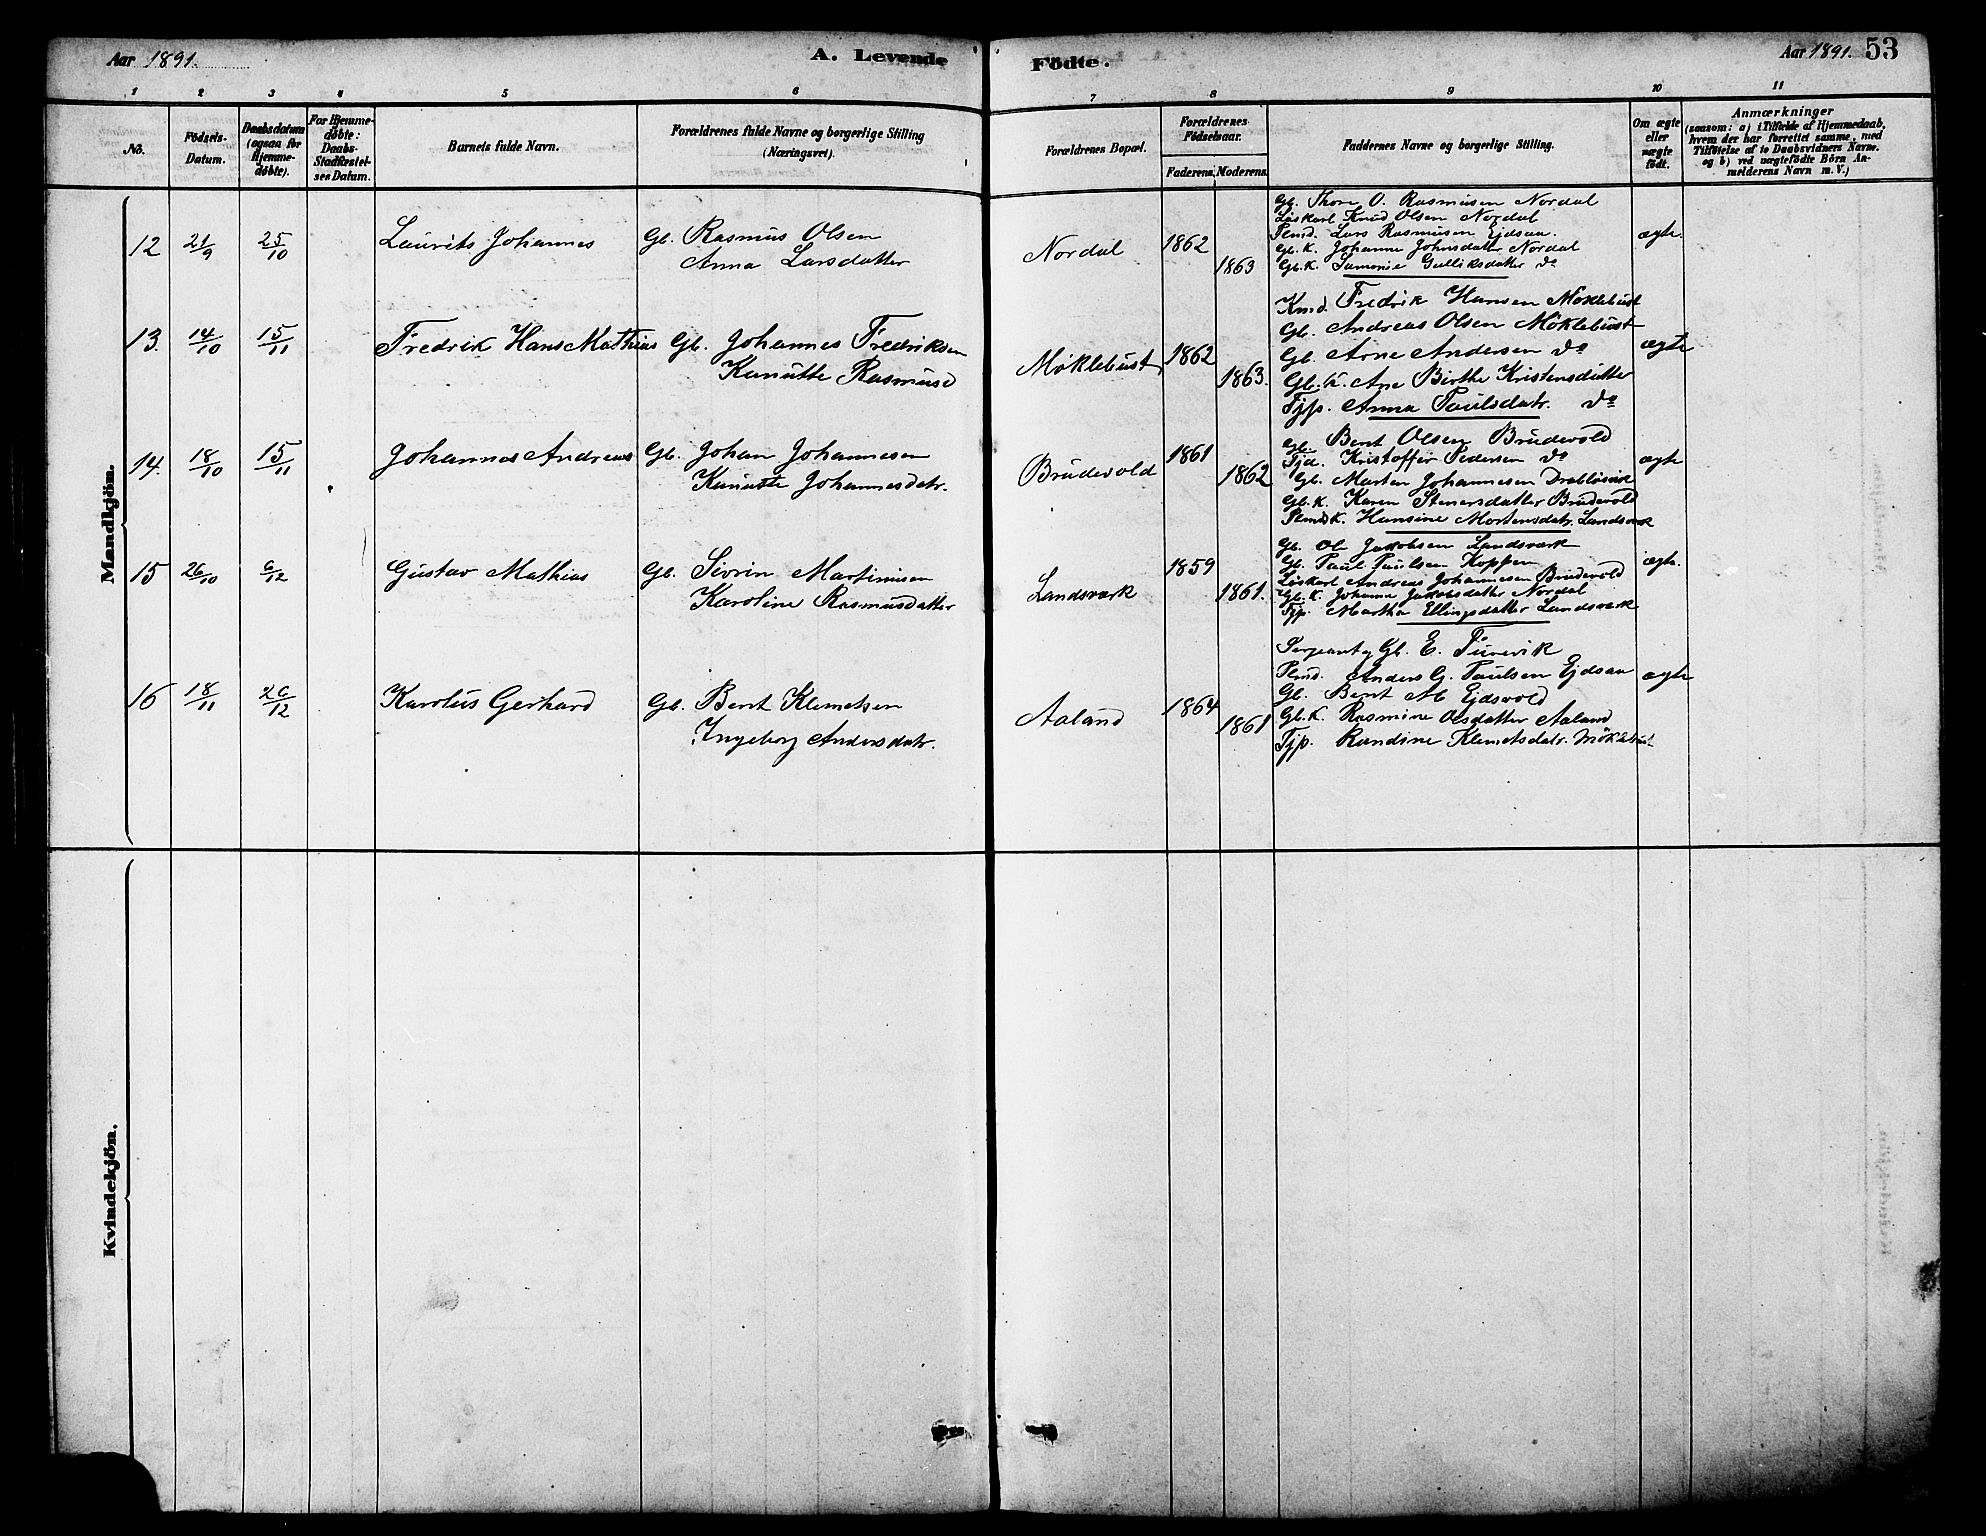 Aar 1891.
A. Levende
Födte.
Aar 1891.
53
1 2 3 4 5 6 7 8 9 10 11
No.
Födsels-
Datum.
Daabsdatum
(ogsaa for
Hjemme-
döbte).
For Hjemme-
döbte:
Daabs-
Stadfæstel-
ses Datum.
Barnets fulde Navn.
Forældrenes fulde Navne og borgerlige Stilling
(Næringsvei).
Forældrenes Bopæl.
Forældrenes
Födselsaar.
Faderens. Moderens.
Faddernes Navne og borgerlige Stilling.
Om ægte
eller
uægte
födt.
Anmærkninger
(saasom: a) i Tilfælde af Hjemmedaab,
hvem der har forrettet samme, med
Tilföielse af to Daabsvidners Navne.
og b) ved uægtefödte Börn An-
melderens Navn m. V.)
Mandkjön.
12 21/9 25/10 Laurits Johannes Gb. Rasmus Olsen
Anna Larsdatter
Nordal 1862 1863
Gb. Thore O. Rasmusen Nordal
Löskarl Knud Olsen Nordal
Plmd. Lars Rasmusen Ejdsaa.
Gb. K. Johanne Johnsdatter Nordal
Gb. K. Gulliksdatter do
ægte.
13. 14/10 15/11 Fredrik Hans Mathias Gb. Johannes Fredriksen
Kanutte Rasmusd
Möklebust 1862 1863.
Kmd. Fredrik Hansen Möklebust
Gb. Andreas Olsen Möklebust
Gb. Arne Andersen do
Gb. K. Ane Birthe Kristensdatter
Tjp. Anna Paulsdatr. do
ægte
14. 18/10 15/11 Johannes Andreas Gb. Johan Johannesen
Kanutte Johannesdatr.
Brudevold 1861 1862
Gb. Bent Olsen Brudevold
Tjd. Kristoffer Pedersen do
Gb. Marten Johannesen
Gb. K. Karen Stenersdatter Brudevold
Plmds K. Hansine Mortensdatr. Landsværk
ægte
15 26/10 6/12 Gustav Mathias Gb. Sivrin Martinusen
Karoline Rasmusdatter
Landsværk 1859 1861.
Gb. Ole Jakobsen Landsværk
Gb. Paul Paulsen Koppen
Löskarl Andreas Johannesen Brudevold
Gb. K. Johanna Jakobsdatter Nordal
Tjp. Martha Ellingsdatter Landsværk
ægte.
16 18/11 26/12 Karolus Gerhard Gb. Bent Klemetsen
Ingeborg Andersdatr.
Aaland 1864 1861
Sergeant og Gb. E.
Plmd. Anders G. Paulsen Ejdsaa
Gb. Bent M Ejdsvold
Gb. K. Rasmine Olsdatter Aaland
Tjp. Randine Klemetsdatr. Möklebust
ægte
Kvindekjön.